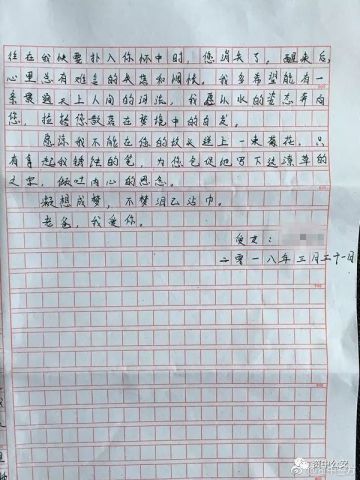 往在我快要扑入你怀中时，您消失了，醒来后，
心里总有难言的失落和惆怅，我多希望能有一
条贯通天上人间的河流，我愿以水的姿态奔向
您，拉
您散落在梦境中的白发。
愿谅我不能在您的坟头送上一束菊花，只
有拿起我
的笔，为您仓促地写下这潦草的
文字，倾吐内心的思念。
凝想成梦，不梦泪已沾巾。
老爸，我爱你。
二零一八年三月二十一日